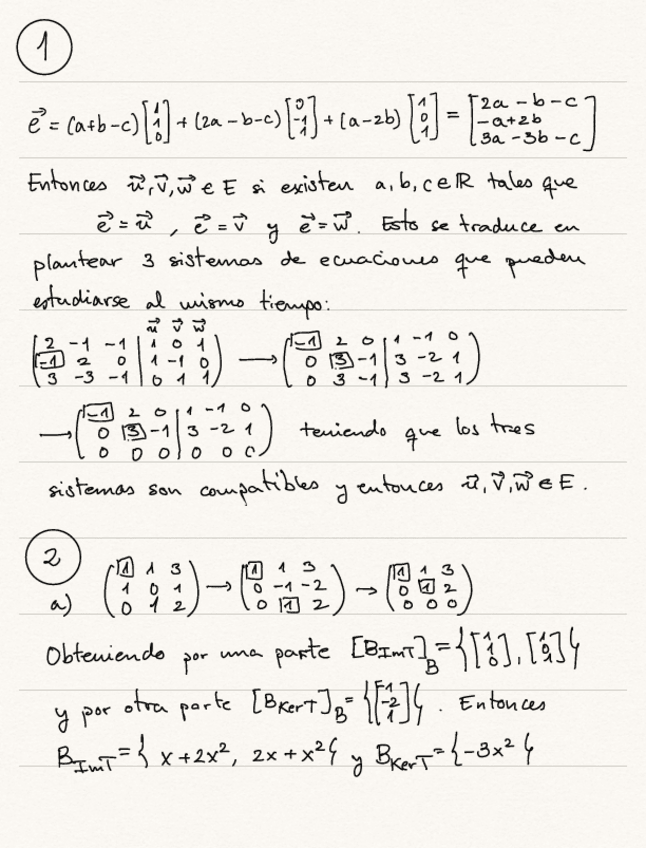 1
e⃗ = (a+b-c) [1 1 0] + (2a-b-c) [0 -1 1] + (a-2b) [1 0 1] = [2a-b-c -a+2b 3a-3b-c]
Entonces u⃗, v⃗, w⃗ ∈ E si existen a, b, c ∈ ℝ tales que
e⃗ = u⃗ , e⃗ = v⃗ y e⃗ = w⃗. Esto se traduce en
plantear 3 sistemas de ecuaciones que pueden
estudiarse al mismo tiempo:
u⃗ v⃗ w⃗
(2 -1 -1 | 1 0 1
-1 2 0 | 1 -1 0
3 -3 -1 | 0 1 1) → (-1 2 0 | 1 -1 0
0 3 -1 | 3 -2 1
0 3 -1 | 3 -2 1)
→ (-1 2 0 | 1 -1 0
0 3 -1 | 3 -2 1
0 0 0 | 0 0 0) teniendo que los tres
sistemas son compatibles y entonces u⃗, v⃗, w⃗ ∈ E.
2
a) (1 1 3
1 0 1
0 1 2) → (1 1 3
0 -1 -2
0 1 2) → (1 1 3
0 1 2
0 0 0)
Obteniendo por una parte [B_ImT]_B = {[1 1 0], [1 0 1]}
y por otra parte [B_KerT]_B = {[-1 -2 1]}. Entonces
B_ImT = { x+2x², 2x+x² } y B_KerT = {-3x²}